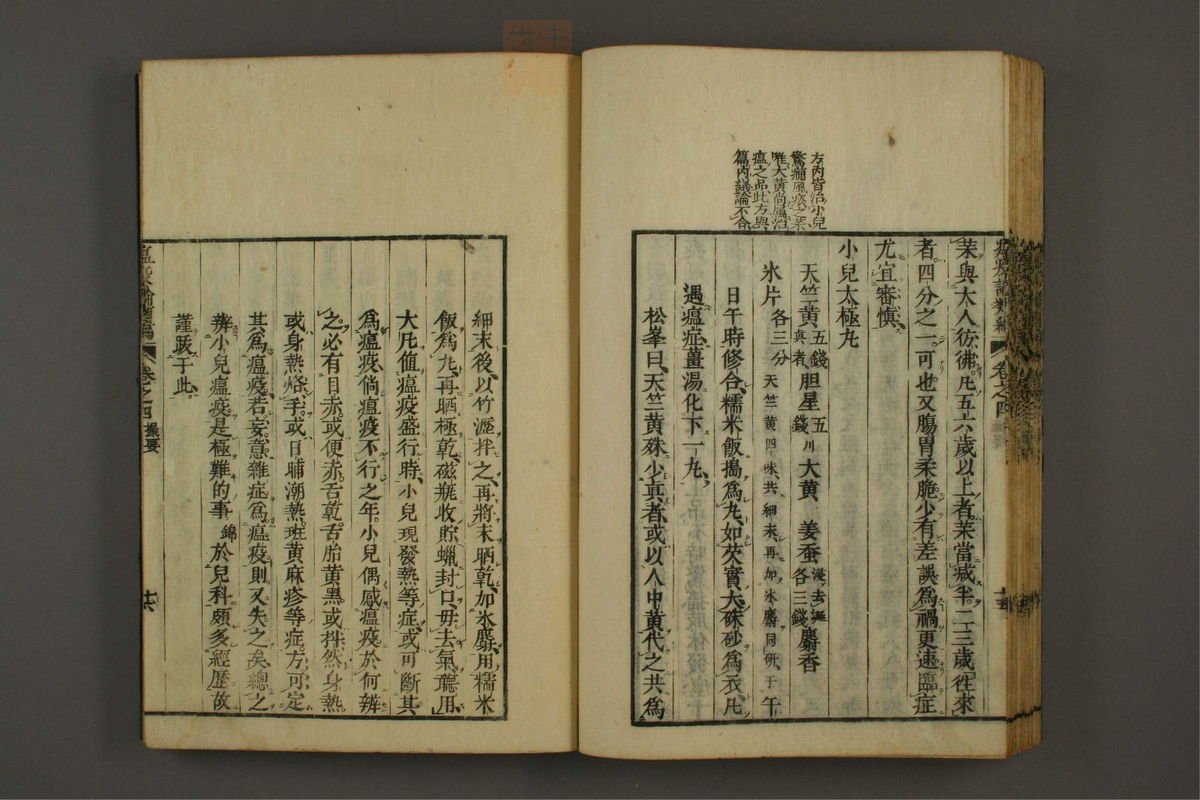 方內皆治小兒
驚癇風痰之藥
唯大黄尚屬治
瘟之品此方與
篇內議論不合
茱與大人彷彿凡五六歲以上者茱當减半二三歲往來
者四分之一可也又腸胃柔脆少有差誤為禍更速臨症
尤宜審慎
小兒太極丸
天竺黄五錢真者胆星五錢川大黄姜蚕洗去涎各三錢麝香
氷片各三分天竺黄四味共細末再加氷麝同研于午
日午時修合糯米飯搗為丸如芡實大硃砂為衣凡
遇瘟症薑湯化下一丸
松峯曰天竺黄殊少真者或以人中黄代之共為
瘟疫論類編 卷之四
細末後以竹瀝拌之再將末晒乾加氷麝用糯米
飯為丸再晒極乾磁瓶收貯蠟封口毋去氣聽用
大凡值瘟疫盛行時小兒現發熱等症或可斷其
為瘟疫倘瘟疫不行之年小兒偶感瘟疫於何辨
之必有目赤或便赤舌乾舌胎黄黑或抖然身熱
或身熱烙手或日晡潮熱斑黄麻疹等症方可定
其為瘟疫若妄意雜症為瘟疫則又失之矣總之
辨小兒瘟疫是極難的事錦於兒科頗多經歷故
謹跋于此
卷之四 撮要